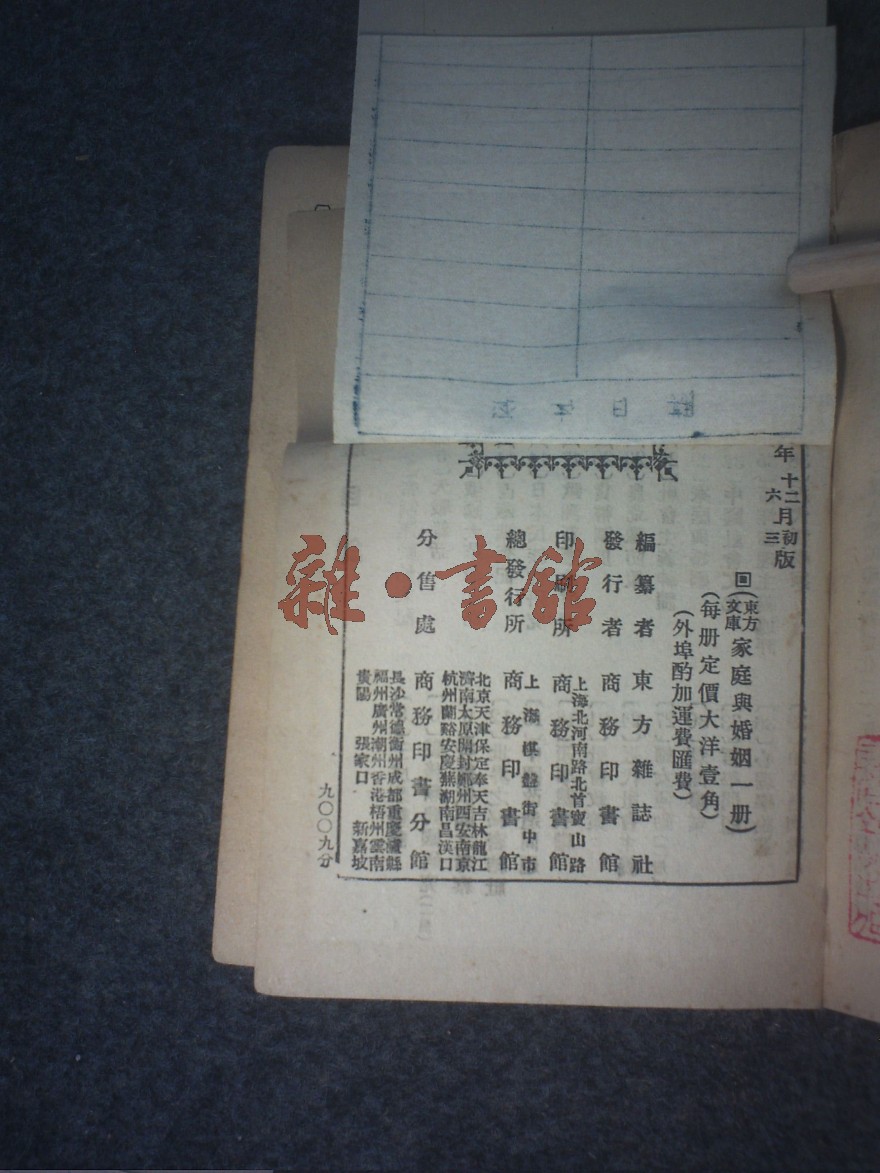 年 十二月初版
六 三
回(東方文庫)家庭與婚姻一册)
(每册定價大洋壹角)
(外埠酌加運費匯費)
編纂者 東方雜誌社
發行者 商務印書館
上海北河南路北首寶山路
印刷所 商務印書館
上海棋盤街中市
總發行所 商務印書館
北京天津保定奉天吉林龍江
濟南太原開封鄭州西安南京
杭州蘭谿安慶蕪湖南昌漢口
分售處 商務印書分館
長沙常德衡州成都重慶瀘縣
福州廣州潮州香港梧州雲南
貴陽 張家口 新嘉坡
九〇〇九分
雜·書館